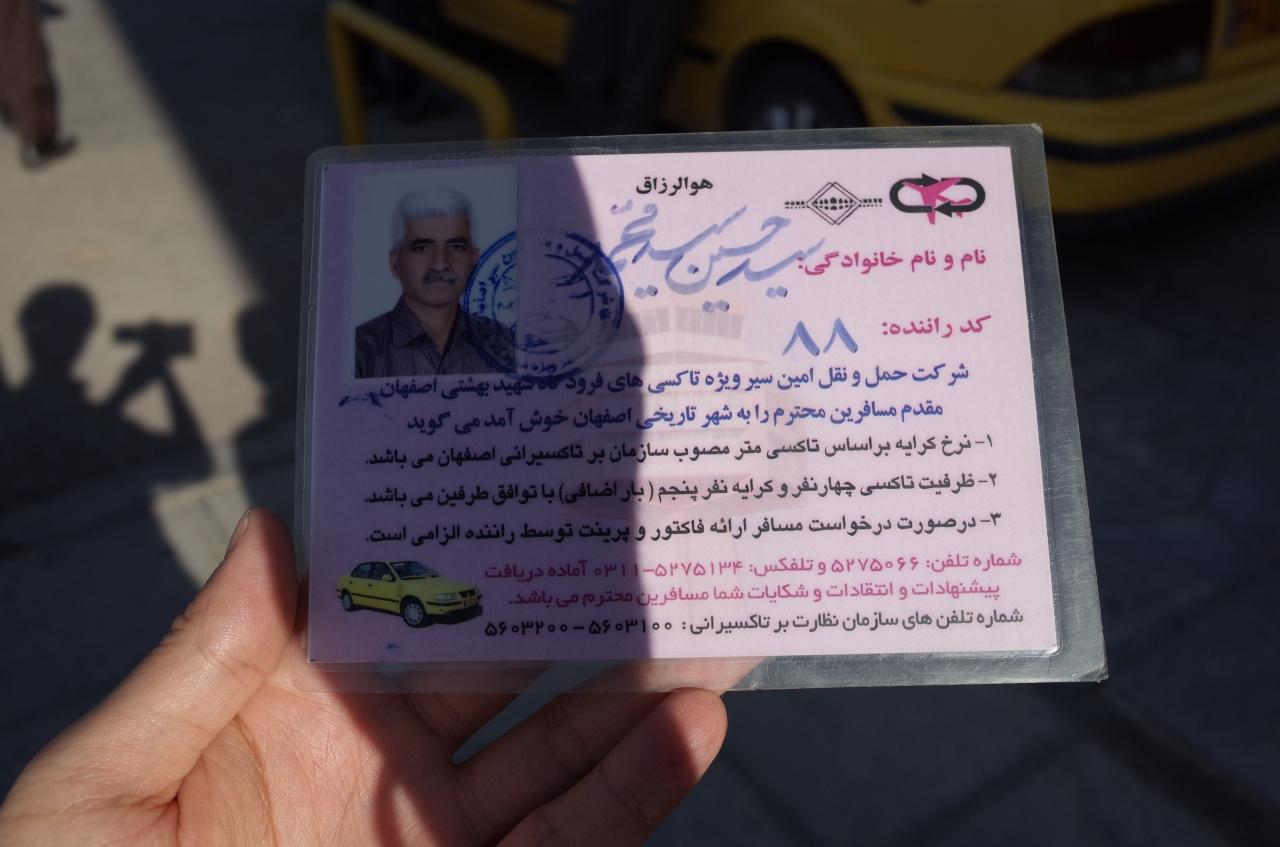 هوالرزاق
نام و نام خانوادگی: سید حسین سید
کد راننده: ۸۸
شرکت حمل و نقل امین سیر ویژه تاکسی های فرودگاه شهید بهشتی اصفهان
مقدم مسافرین محترم را به شهر تاریخی اصفهان خوش آمد می گوید
۱- نرخ کرایه براساس تاکسی متر مصوب سازمان بر تاکسیرانی اصفهان می باشد.
۲- ظرفیت تاکسی چهارنفر و کرایه نفر پنجم ( بار اضافی) با توافق طرفین می باشد.
۳- درصورت درخواست مسافر ارائه فاکتور و پرینت توسط راننده الزامی است.
شماره تلفن: ۵۲۷۵۰۶۶ و تلفکس: ۵۲۷۵۱۳۴-۰۳۱۱ آماده دریافت
پیشنهادات و انتقادات و شکایات شما مسافرین محترم می باشد.
شماره تلفن های سازمان نظارت بر تاکسیرانی: ۵۶۰۳۱۰۰ - ۵۶۰۳۲۰۰